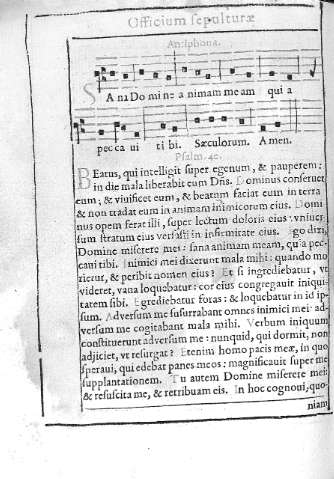 Officium sepulturæ
Antiphona.
SAna Domine animam meam quia
peccaui tibi. Sæculorum. Amen.
Psalm. 40.
BEatus, qui intelligit super egenum, & pauperem:
in die mala liberabit eum Dñs. Dominus conseruet
eum, & viuificet eum, & beatum faciat eum in terra
& non tradat eum in animam inimicorum eius. Domi-
nus opem ferat illi, super lectum doloris eius vniuer-
sum stratum eius versasti in infirmitate eius. Ego dixi,
Domine miserere mei: sana animam meam, quia pec-
caui tibi. Inimici mei dixerunt mala mihi: quando mo
rietur, & peribit nomen eius? Et si ingrediebatur, vt
videret, vana loquebatur: cor eius congregauit iniqui-
tatem sibi. Egrediebatur foras: & loquebatur in id ip-
sum. Aduersum me susurrabant omnes inimici mei: ad-
uersum me cogitabant mala mihi. Verbum iniquum
constituerunt aduersum me: nunquid, qui dormit, non
adjiciet, vt resurgat? Etenim homo pacis meæ, in quo
speraui, qui edebat panes meos: magnificauit super me
supplantationem. Tu autem Domine miserere mei:
& resuscita me, & retribuam eis. In hoc cognoui, quo-
niam